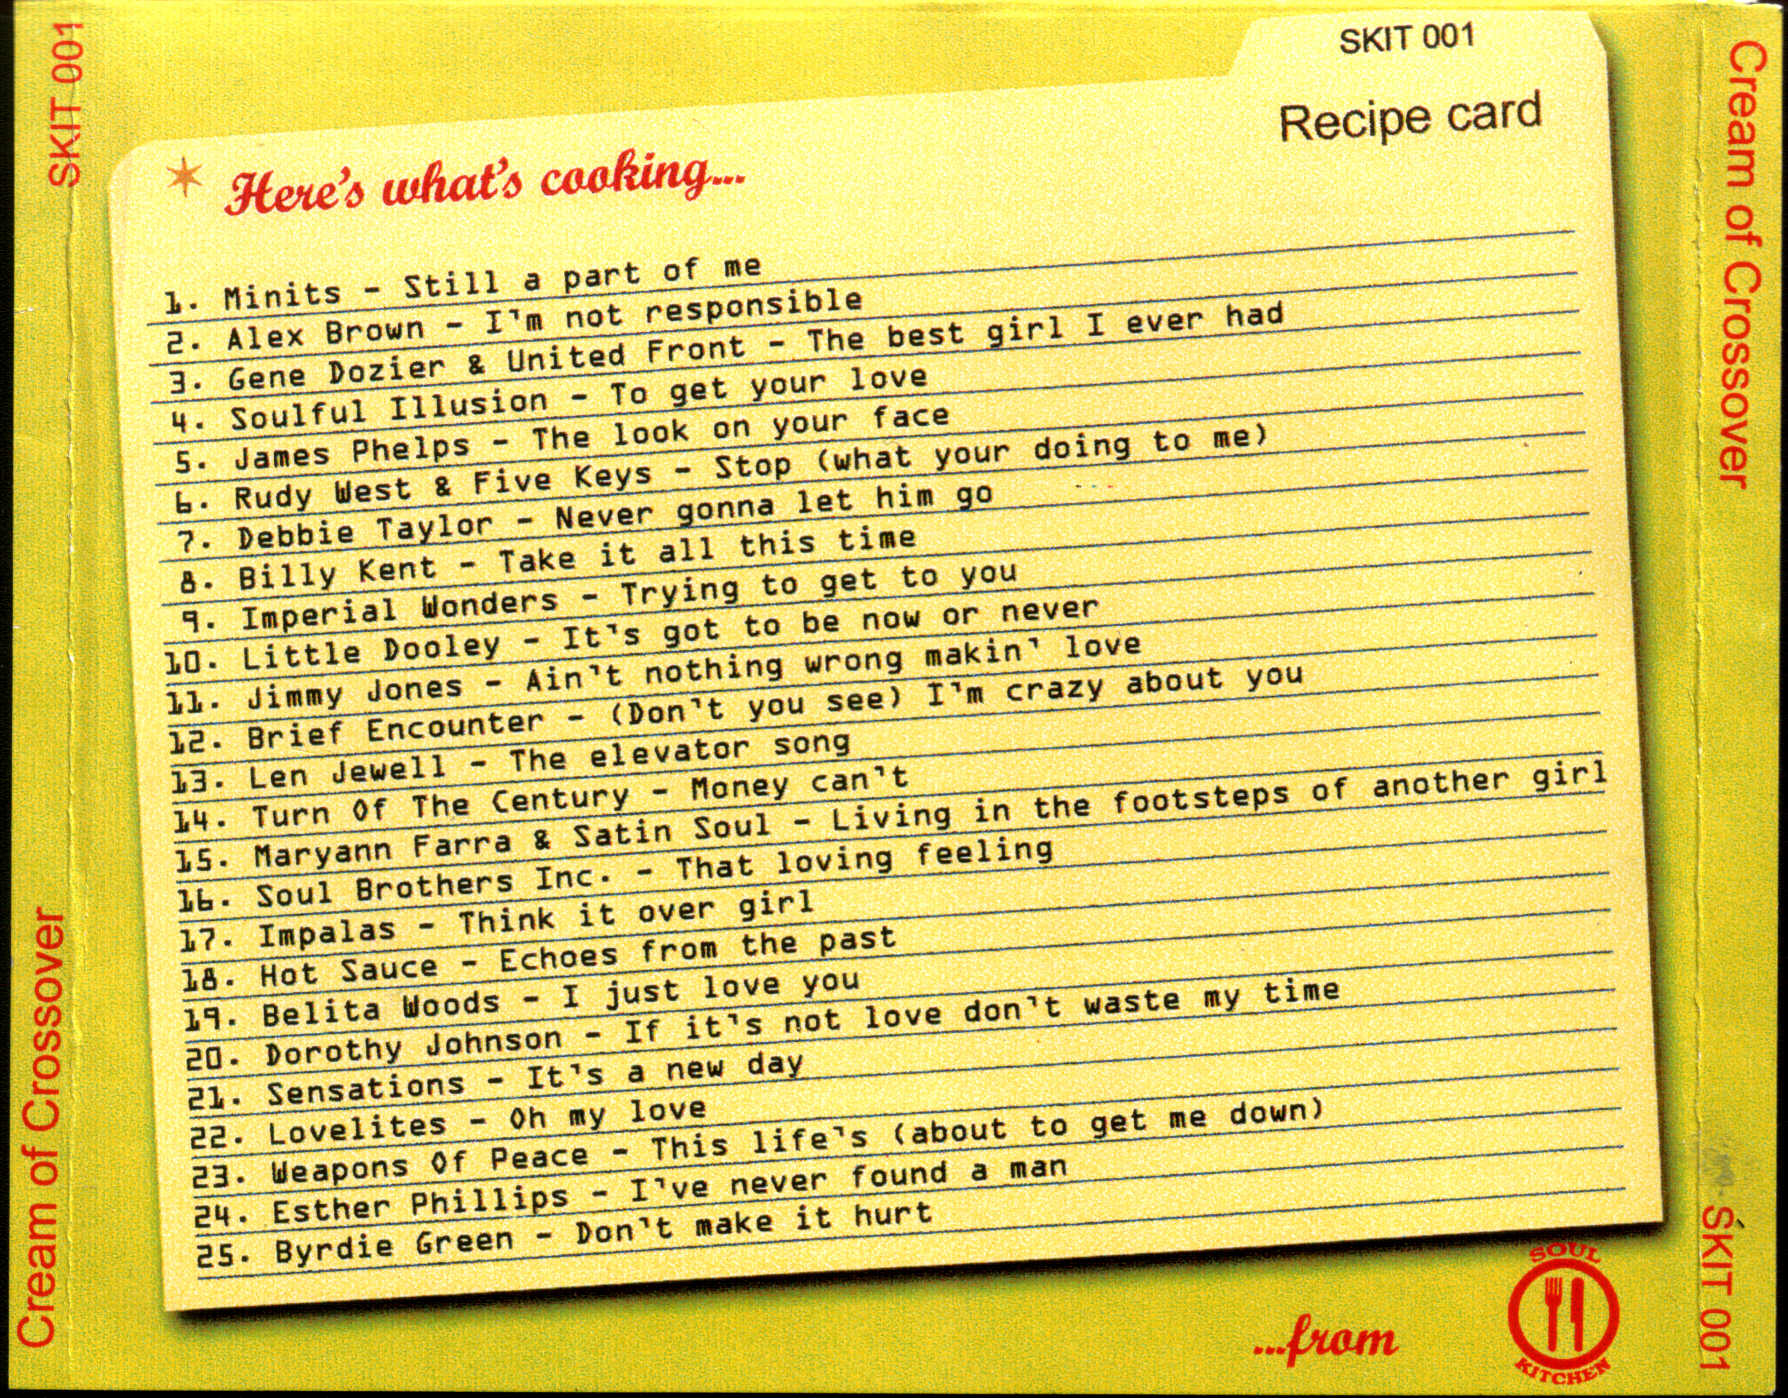 SKIT 001
Recipe card
* Here's what's cooking...
1. Minits - Still a part of me
2. Alex Brown - I'm not responsible
3. Gene Dozier & United Front - The best girl I ever had
4. Soulful Illusion - To get your love
5. James Phelps - The look on your face
6. Rudy West & Five Keys - Stop (what your doing to me)
7. Debbie Taylor - Never gonna let him go
8. Billy Kent - Take it all this time
9. Imperial Wonders - Trying to get to you
10. Little Dooley - It's got to be now or never
11. Jimmy Jones - Ain't nothing wrong makin' love
12. Brief Encounter - (Don't you see) I'm crazy about you
13. Len Jewell - The elevator song
14. Turn Of The Century - Money can't
15. Maryann Farra & Satin Soul - Living in the footsteps of another girl
16. Soul Brothers Inc. - That loving feeling
17. Impalas - Think it over girl
18. Hot Sauce - Echoes from the past
19. Belita Woods - I just love you
20. Dorothy Johnson - If it's not love don't waste my time
21. Sensations - It's a new day
22. Lovelites - Oh my love
23. Weapons Of Peace - This life's (about to get me down)
24. Esther Phillips - I've never found a man
25. Byrdie Green - Don't make it hurt
...from
SOUL
KITCHEN
Cream of Crossover
SKIT 001
Cream of Crossover
SKIT 001